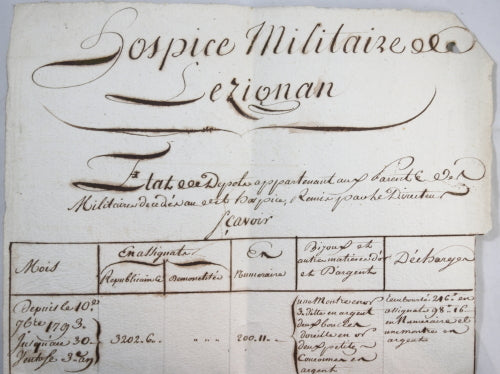 Hospice Militaire de
Lezignan
Etat de Depots appartenant aux Parents de
Militaires decédés au dit hospice, Remis par le Directeur
Scavoir
Mois
En assignats
Republicain Demonétisés
En
Numéraire
Bijoux et
autre matieres d'or
et D'argent
Décharges
Depuis le 10e
9bre 1793.
Jusqu'au 30
Ventose 3e an
3202.6
" "
" "
200.11
une Montre en or
3 Ditte en argent
deux boucles
doreille en or
deux petite
en
argent
Remboursé 246# en
assignat 98#-16
en Numéraire et
une montre en
argent